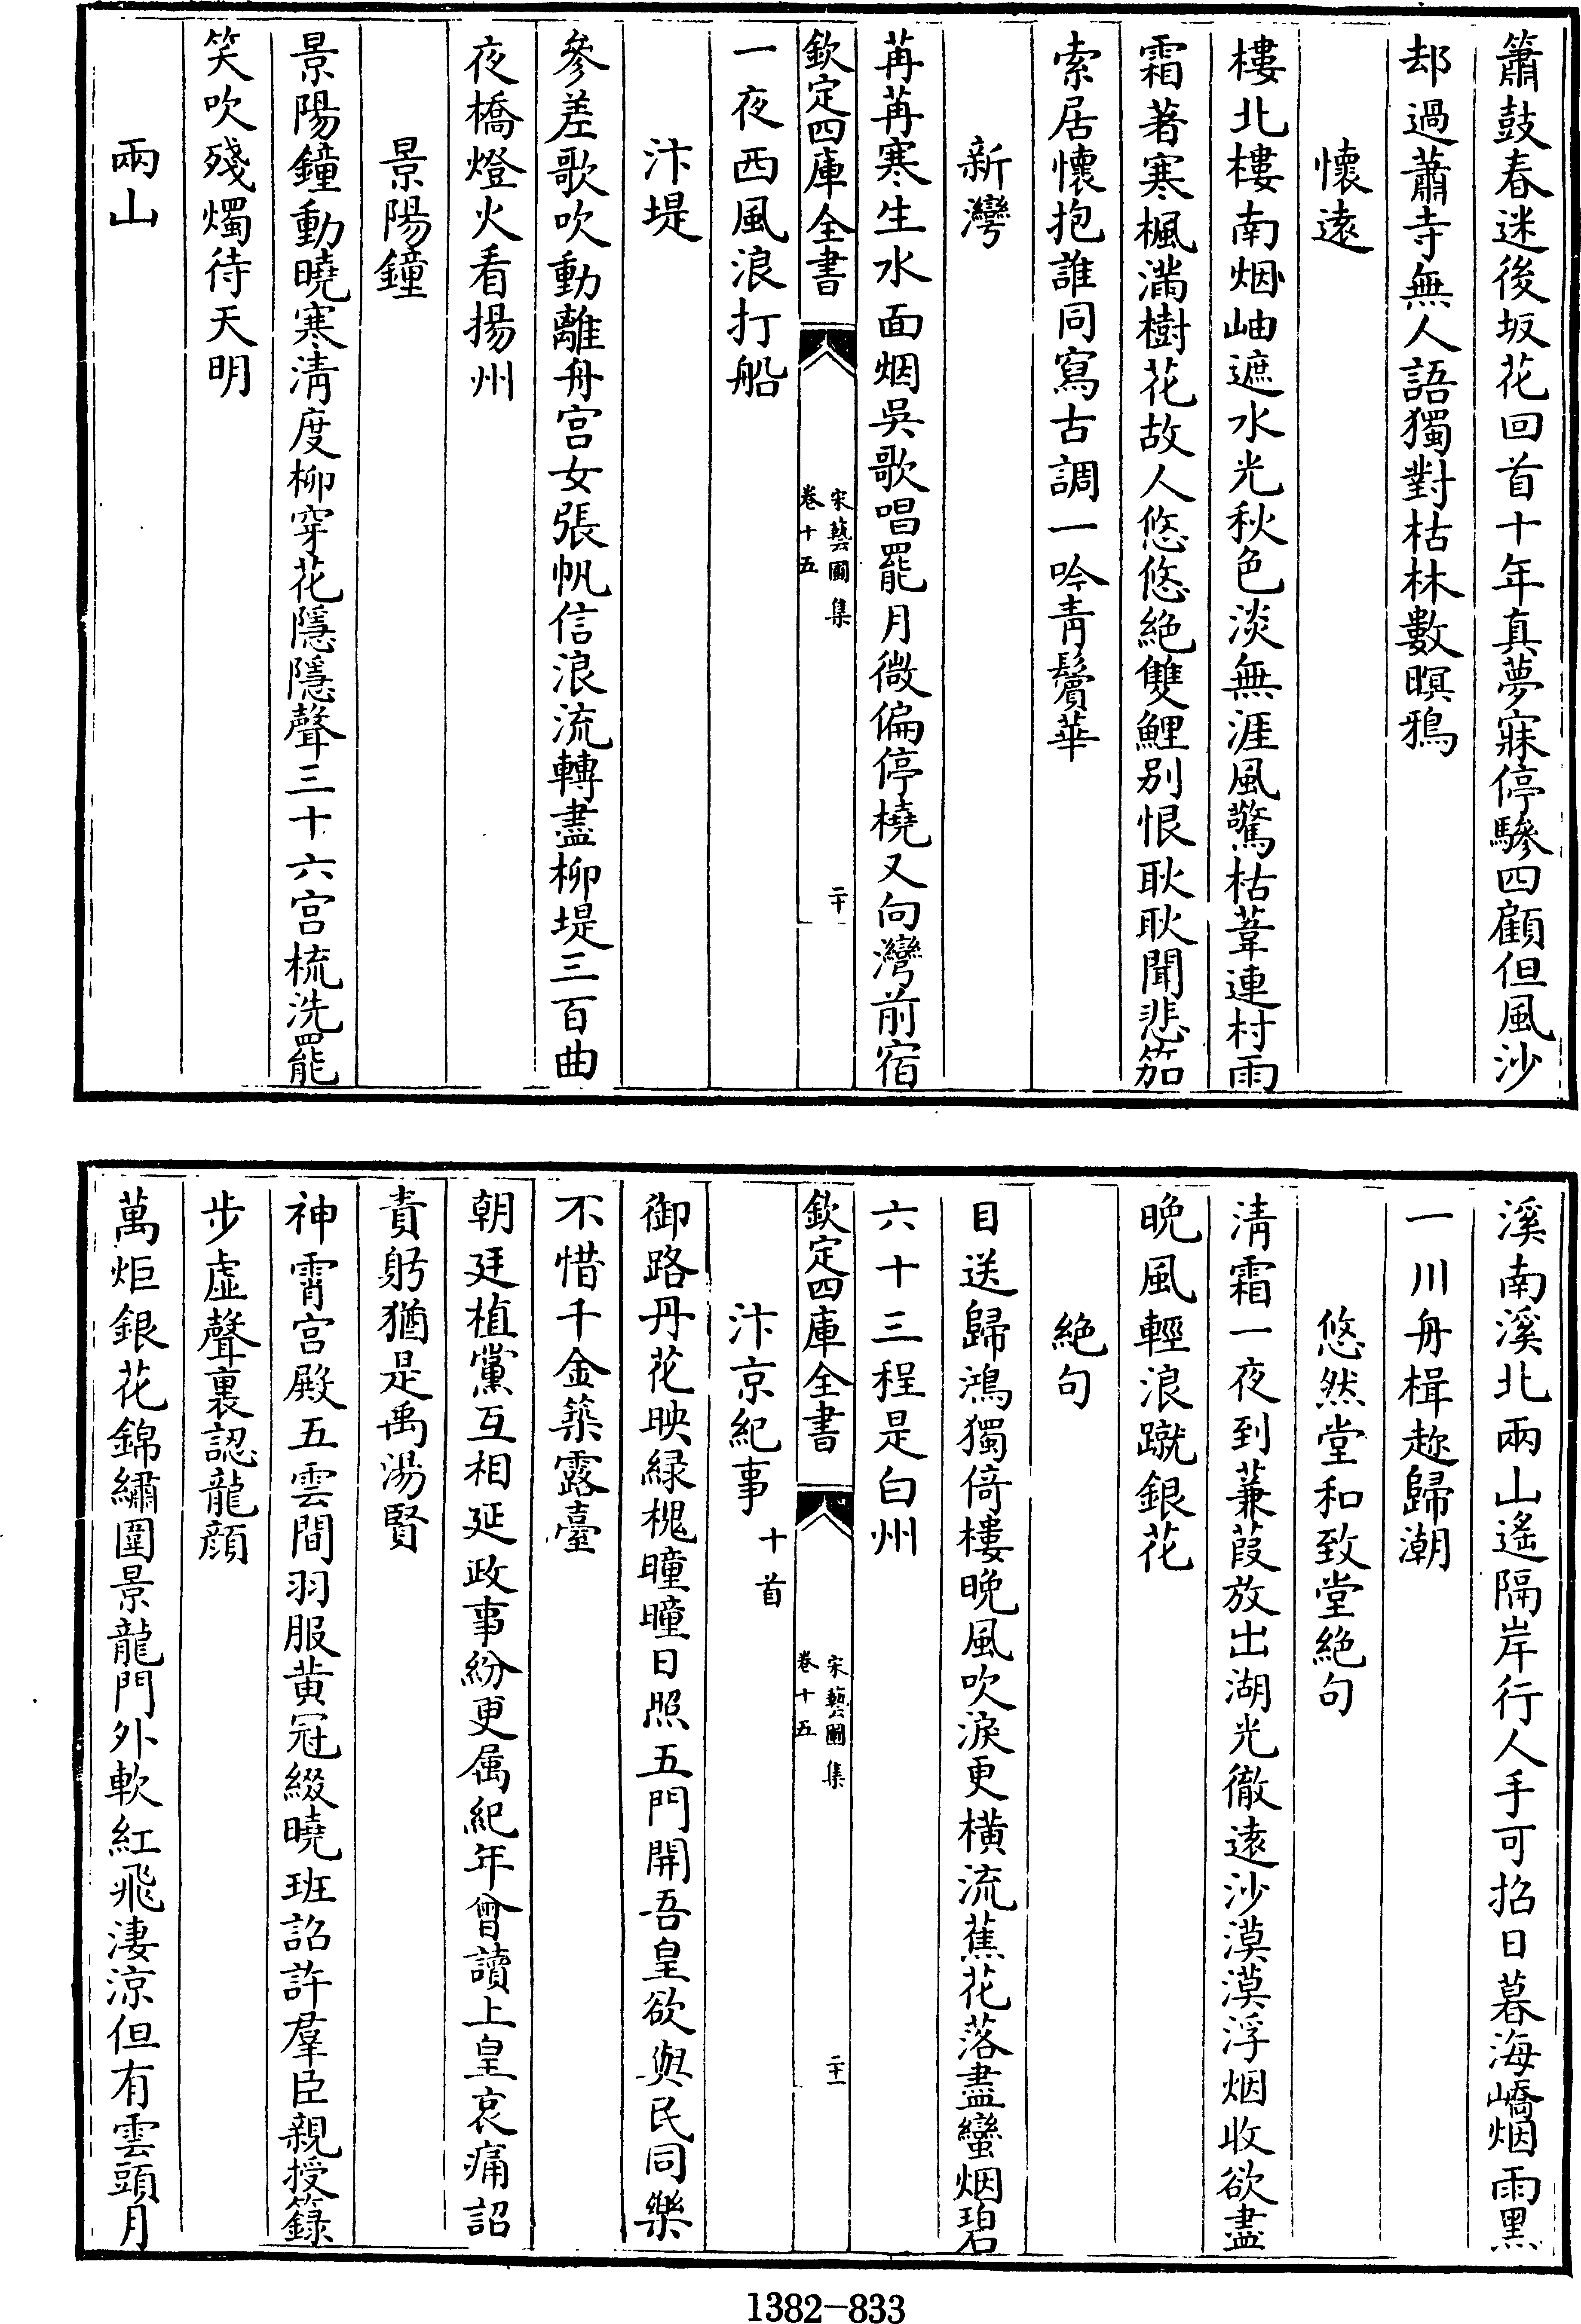 簫鼓春迷後坂花回首十年真夢寐停驂四顧但風沙
却過蕭寺無人語獨對枯林數暝鴉
懷遠
樓北樓南烟岫遮水光秋色淡無涯風驚枯葦連村雨
霜著寒楓滿樹花故人悠悠絶雙鯉别恨耿耿聞悲笳
索居懷抱誰同寫古調一吟青鬢華
新灣
苒苒寒生水面烟吳歌唱罷月微偏停橈又向灣前宿
欽定四庫全書
宋藝圃集
卷十五
二十
一夜西風浪打船
汴堤
參差歌吹動離舟宫女張帆信浪流轉盡柳堤三百曲
夜橋燈火看揚州
景陽鐘
景陽鐘動曉寒清度柳穿花隱隱聲三十六宫梳洗罷
笑吹殘燭待天明
兩山
溪南溪北兩山遙隔岸行人手可招日暮海嶠烟雨黑
一川舟楫趂歸潮
悠然堂和致堂絶句
清霜一夜到蒹葭放出湖光徹遠沙漠漠浮烟收欲盡
晩風輕浪蹴銀花
絶句
目送歸鴻獨倚樓晩風吹淚更橫流蕉花落盡蠻烟碧
六十三程是白州
欽定四庫全書
宋藝圃集
卷十五
二十一
汴京紀事十首
御路丹花映緑槐曈曈日照五門開吾皇欲與民同樂
不惜千金築露臺
朝廷植黨互相延政事紛更属紀年曾讀上皇哀痛詔
責躬猶是禹湯賢
神霄宫殿五雲間羽服黄冠綴曉班詔許羣臣親授籙
步虚聲裏認龍顔
萬炬銀花錦繡圍景龍門外軟紅飛淒涼但有雲頭月
1382-833